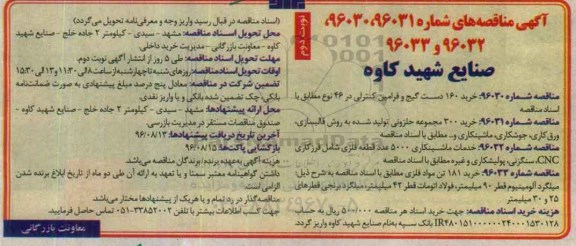 آگهی مناقصه‌های شماره ۹۶۰۳۰،۹۶۰۳۱،
۹۶۰۳۲ و ۹۶۰۳۳
صنایع شهید کاوه
نوبت دوم
مناقصه شماره ۹۶۰۳۰: خرید ۱۶۰ دست گیج و فرامین کنترلی در ۴۶ نوع مطابق با
اسناد مناقصه
مناقصه شماره ۹۶۰۳۱: خرید ۲۰۰ مجموعه حلزونی تولید شده به روش قالبسازی،
ورق‌کاری، جوشکاری، ماشینکاری و... مطابق با اسناد مناقصه
مناقصه شماره ۹۶۰۳۲: خدمات ماشینکاری ۵۰۰۰ عدد قطعه فلزی شامل فرزکاری
CNC، سنگزنی، پولیشکاری و غیره مطابق با اسناد مناقصه
مناقصه شماره ۹۶۰۳۳: خرید ۱۸۱ تن مواد فلزی مطابق با اسناد مناقصه به شرح ذیل:
میلگرد آلومینیوم قطر ۹۰ میلیمتر، فولاد اتومات قطر ۴۲ میلیمتر، میلگرد برنجی قطرهای
۲۵ و ۳۰ میلیمتر
هزینه خرید اسناد مناقصه: جهت خرید اسناد هر مناقصه ۵۰۰/۰۰۰ ریال به حساب
بانک سپه به‌نام صنایع شهید کاوه واریز گردد.
(اسناد مناقصه در قبال رسید واریز وجه و معرفی‌نامه تحویل می‌گردد)
محل تحویل اسناد مناقصه: مشهد - سیدی - کیلومتر ۲ جاده خلج - صنایع شهید
کاوه - معاونت بازرگانی - مدیریت خرید داخلی
مهلت تحویل اسناد مناقصه: طی ۵ روز از انتشار آگهی نوبت دوم.
اوقات تحویل اسناد مناقصه: روزهای شنبه تا چهارشنبه از ساعت ۸ الی ۱۱:۳۰ و ۱۳ الی ۱۵:۳۰
تضمین شرکت در مناقصه: معادل پنج درصد مبلغ پیشنهادی به صورت ضمانت‌نامه
بانکی، چک تضمین شده بانکی و یا واریز نقدی.
محل ارائه پیشنهادها: مشهد - سیدی - کیلومتر ۲ جاده خلج - صنایع شهید کاوه -
صندوق مناقصات مستقر در مدیریت بازرسی.
آخرین تاریخ دریافت پیشنهادها: ۹۶/۰۸/۱۳
بازگشایی پاکت‌ها: ۹۶/۰۸/۱۵
هزینه آگهی به‌عهده برنده/ برندگان مناقصه می‌باشد.
داشتن گواهینامه معتبر سمتا و یا تعهد به ارائه آن طی دو ماه از تاریخ ابلاغ برنده شدن
الزامی است.
مناقصه گذار در رد تمام و یا هریک از پیشنهادها مختار می‌باشد.
جهت کسب اطلاعات بیشتر با تلفن ۳۳۸۵۲۰۰۲-۰۵۱ تماس حاصل فرمایید.
معاونت بازرگانی